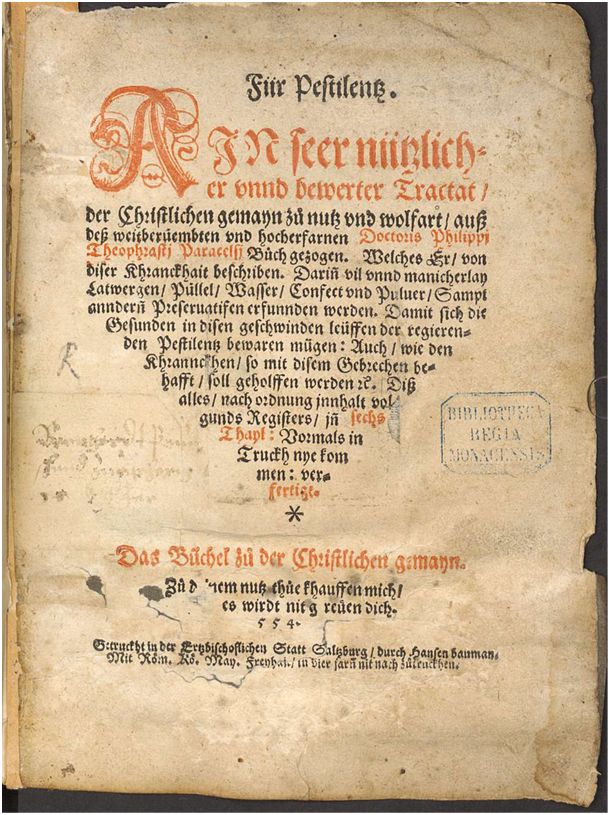 Für Pestilentz.
AIN seer nützlich-
er vnnd bewerter Tractat /
der Christlichen gemayn zů nutz vnd wolfart / auß
deß weitberüembten vnd hocherfarnen Doctoris Philippi
Theophrasti Paracelsj Bůch gezogen. Welches Er / von
diser Khranckhait beschriben. Dariñ vil vnnd manicherlay
Latwergen / Püllel / Wasser / Confect vnd Puluer / Sampt
anndern̄ Preseruatifen erfunnden werden. Damit sich die
Gesunden in disen geschwinden leüffen der regieren-
den Pestilentz bewaren mügen: Auch / wie den
Khrannckhen / so mit disem Gebrechen be-
hafft / soll geholffen werden ꝛc. Diß
alles / nach ordnung innhalt vol
gunds Registers / jn̄ sechs
Thayl: Vormals in
Truckh nye kom
men: ver-
fertigt.
*
Das Büchel zů der Christlichen gemayn.
Zů nutz thůe khauffen mich /
es wirdt nit g reüen dich.
554.
Getruckht in der Ertzbischoflichen Statt Saltzburg / durch Hansen bauman.
Mit Röm. Kö. May. Freyhai. / in vier jarn̄ nit nach zůtruckhen.
BIBLIOTHECA
REGIA
MONACENSIS.
R